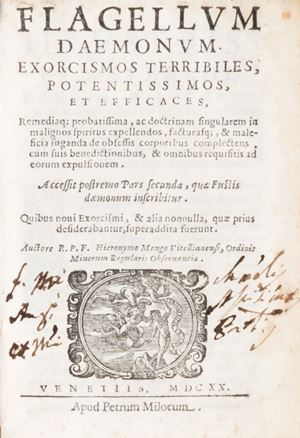 FLAGELLVM
DAEMONVM.
EXORCISMOS TERRIBILES,
POTENTISSIMOS,
ET EFFICACES,
Remediaq; probatissima, ac doctrinam singularem in
malignos spiritus expellendos, facturasq;, & male-
ficia fuganda de obsessis corporibus complectens
cum suis benedictionibus, & omnibus requisitis ad
eorum expulsionem.
Accessit postremo Pars secunda, quæ Fustis
dæmonum inscribitur.
Quibus noui Exorcismi, & alia nonnulla, quæ prius
desiderabantur, superaddita fuerunt.
Auctore R. P. F. Hieronymo Mengo Vitellianensi, Ordinis
Minorum Regularis Obseruantiæ.
VENETIIS, MDCXX.
Apud Petrum Milocum.